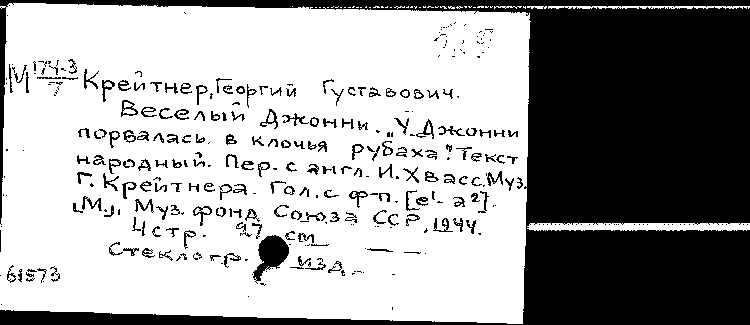 529
М 174-3/7 Крейтнер, Георгий Густавович.
Веселый Джонни. „У Джонни
порвалась в клочья рубаха". Текст
народный. Пер. с англ. И. Хвасс. Муз.
Г. Крейтнера. Гол. с ф-п. [e¹- a²].
„М.", Муз. фонд Союза ССР, 1944.
4 стр. 27 см
Стеклогр. изд.
61573